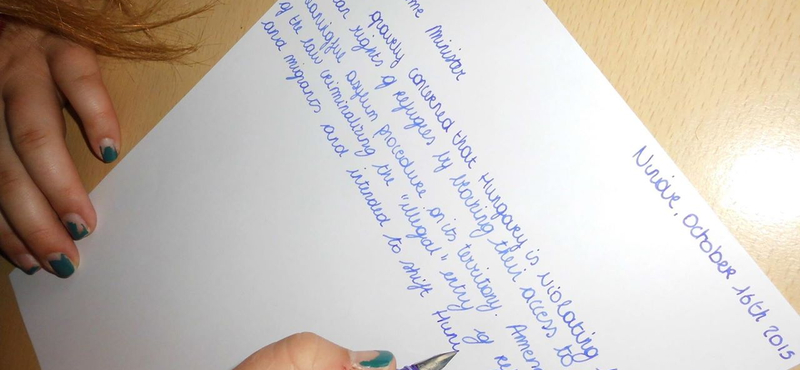 Ninove, October 16th 2015
me Minister
gravely concerned that Hungary is violating
rights of refugees by blocking their access to
eaningful asylum procedure on its territory. Amen
of the law criminalizing the "illegal" entry of re
and migrants and intended to shift Hun